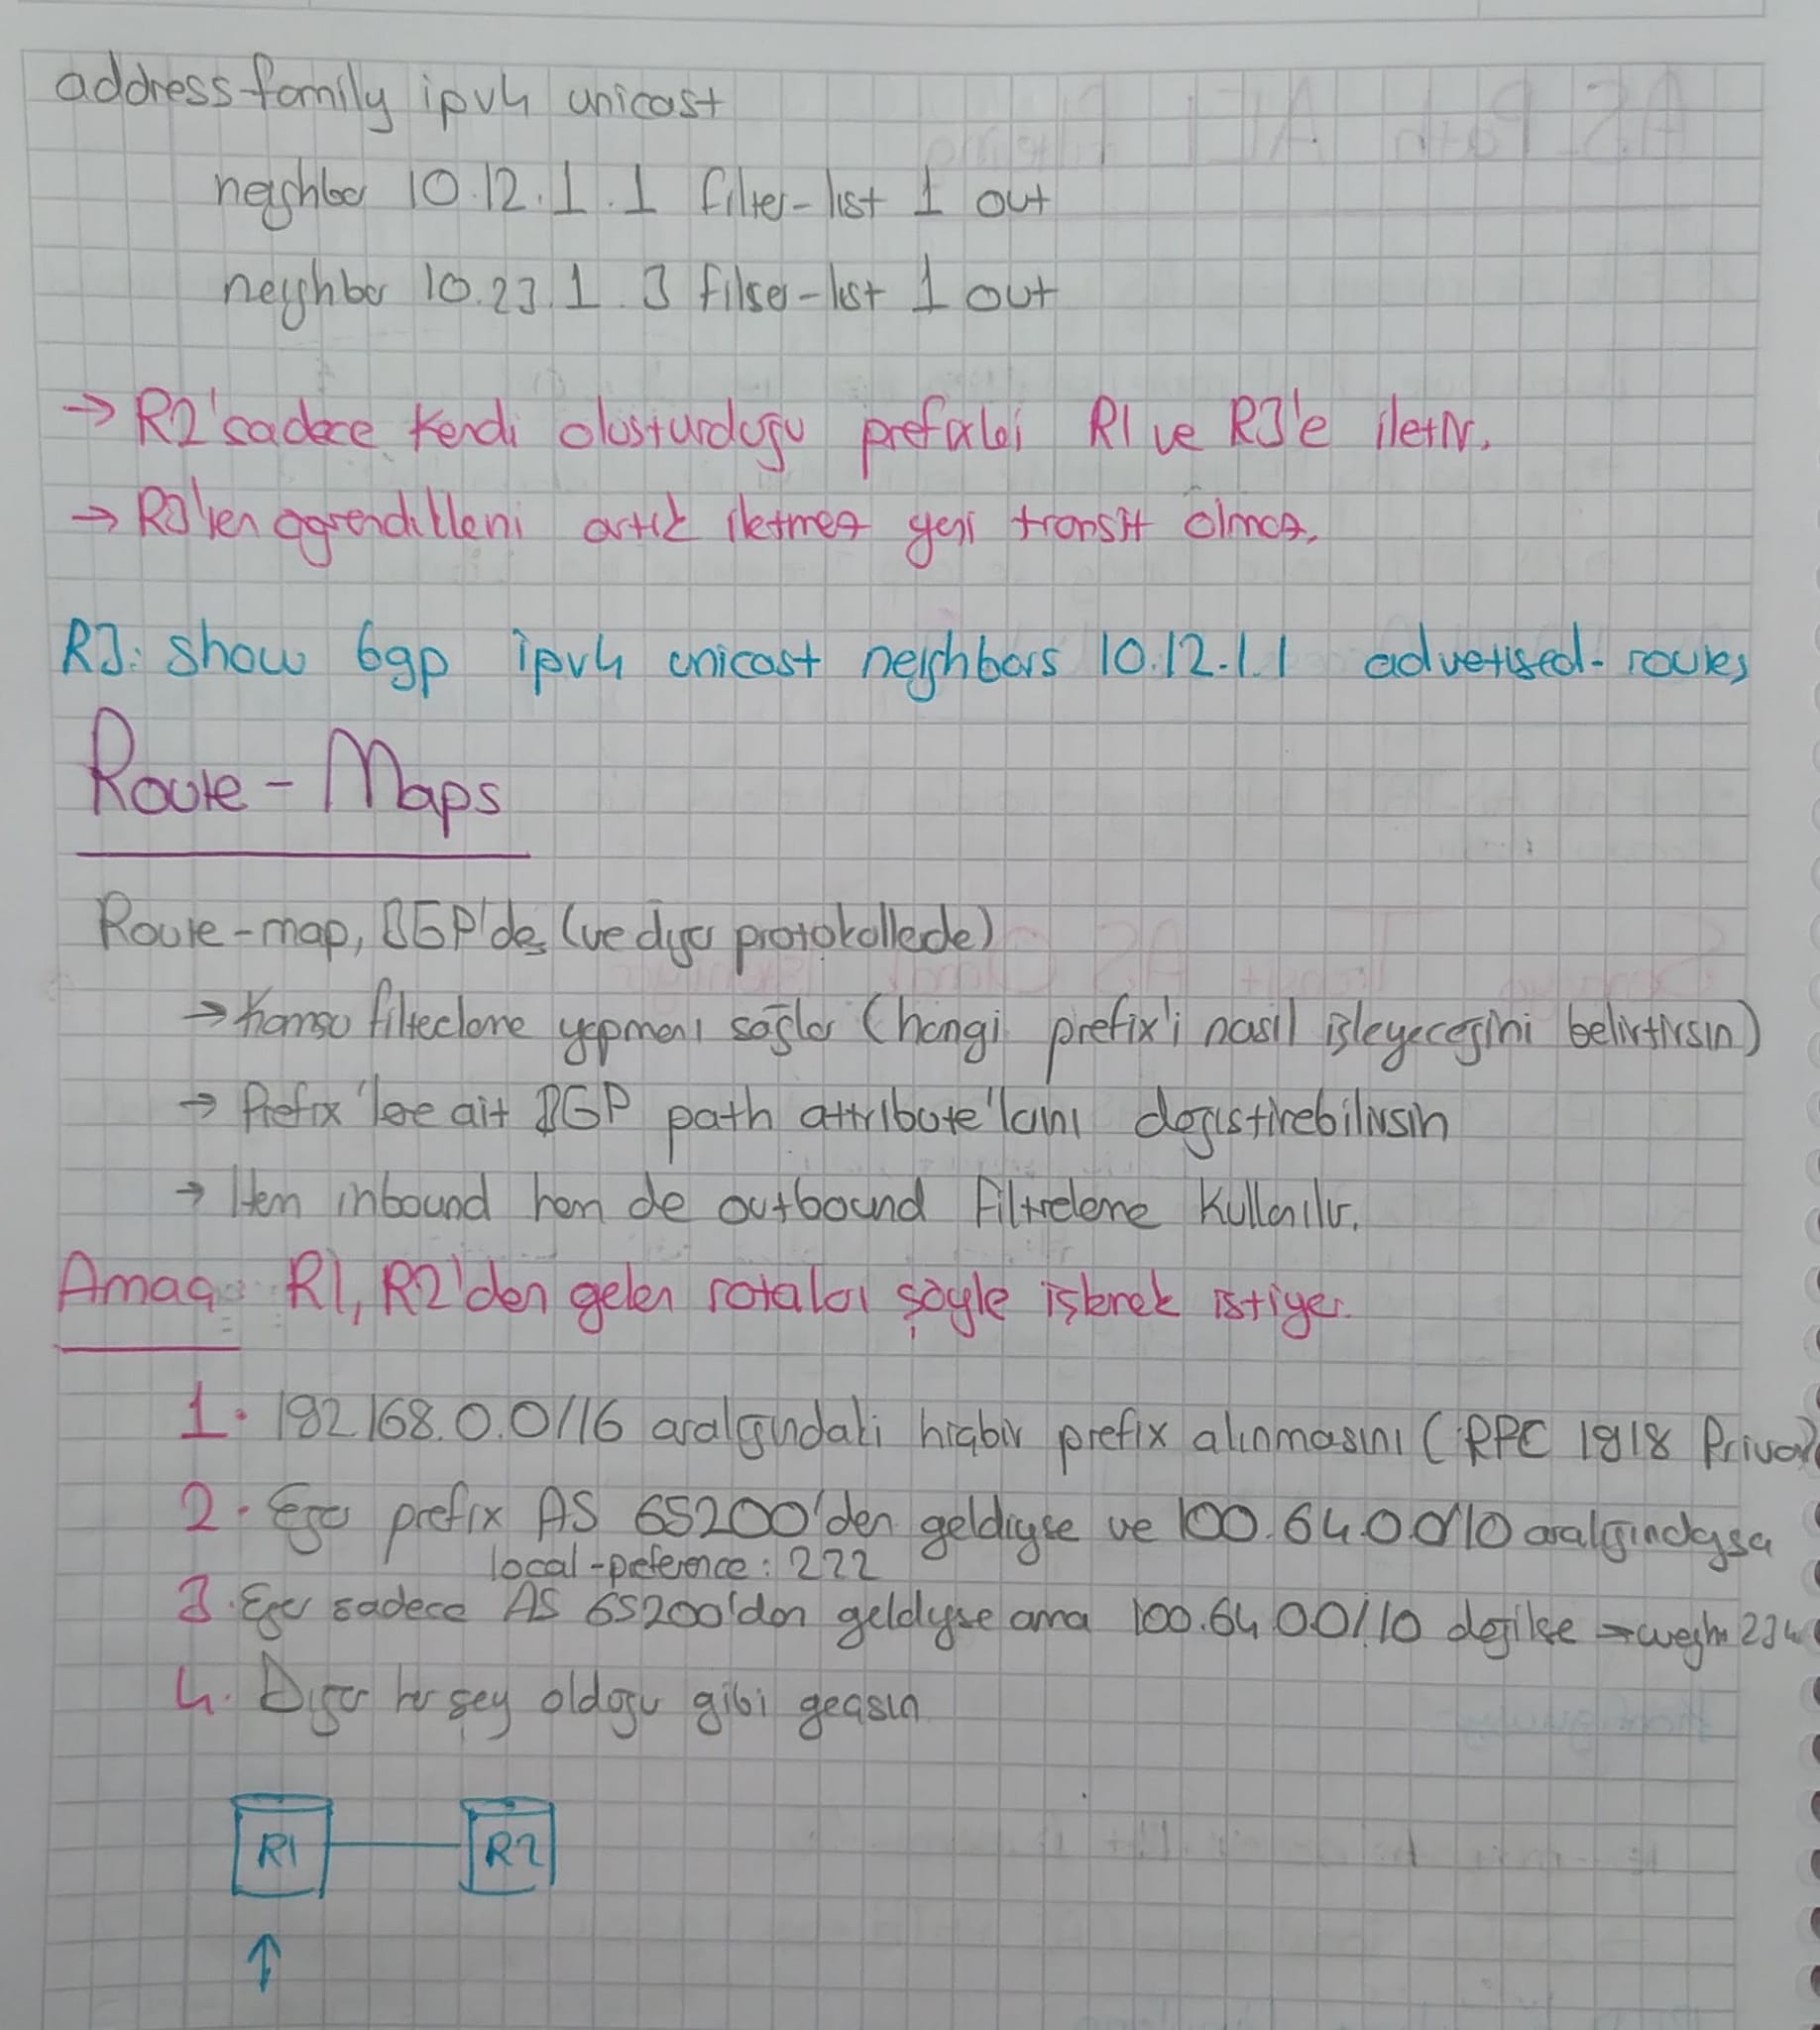 address-family ipv4 unicast
neighbor 10.12.1.1 filter-list 1 out
neighbor 10.23.1.3 filter-list 1 out
→ R2'sadece kendi oluşturduğu prefixleri R1 ve R3'e iletir.
→ R3'ten öğrendiklerini artık iletmez yani transit olmaz.
R3: show bgp ipv4 unicast neighbors 10.12.1.1 advertised-routes
Route-Maps
Route-map, BGP'de (ve diğer protokollerde)
→ filtreleme yapmanı sağlar (hangi prefix'i nasıl işleyeceğini belirtirsin)
→ Prefix'lere ait BGP path attribute'larını değiştirebilirsin
→ Hem inbound hem de outbound filtreleme kullanılır.
Amaç: R1, R2'den gelen rotaları şöyle işlemek istiyor.
1. 192.168.0.0/16 aralığındaki hiçbir prefix alınmasını (RFC 1918
2. Eğer prefix AS 65200'den geldiyse ve 100.64.0.0/10 aralığındaysa
local-preference: 222
3. Eğer sadece AS 65200'den geldiyse ama 100.64.0.0/10 değilse → weight 234
4. Diğer her şey olduğu gibi geçsin
R1 R2